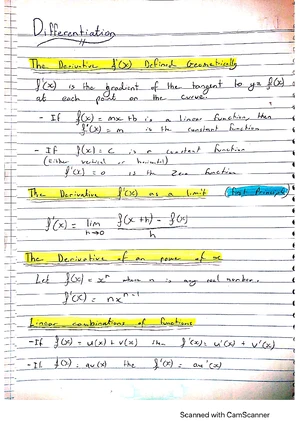 Differentiation
The Derivative f'(x) Defined Geometrically
f'(x) is the gradient of the tangent to y = f(x)
at each point on the curve.
- If f(x) = mx + b is a linear function, then
f'(x) = m is the constant function
- If f(x) = c is a constant function
(either vertical or horizontal)
f'(x) = 0 is the zero function
The Derivative f'(x) as a limit (First Principle)
f'(x) = lim h→0 f(x+h) - f(x) / h
The Derivative of an power of x
Let f(x) = xⁿ where n is any real number.
f'(x) = nxⁿ⁻¹
Linear combinations of functions
- If f(x) = u(x) + v(x) then f'(x) = u'(x) + v'(x)
- If f(x) = au(x) the f'(x) = au'(x)
Scanned with CamScanner